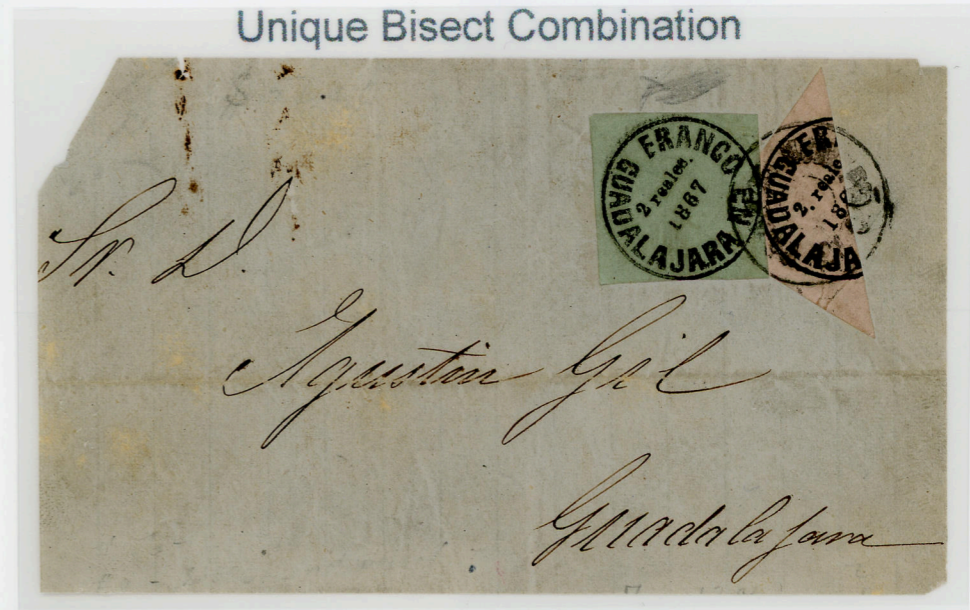 Unique Bisect Combination
FRANCO EN GUADALAJARA
2 reales.
1867
FR
GUADALAJA
2. reale
186
Sr. D.
Agustin Gil
Guadalajara